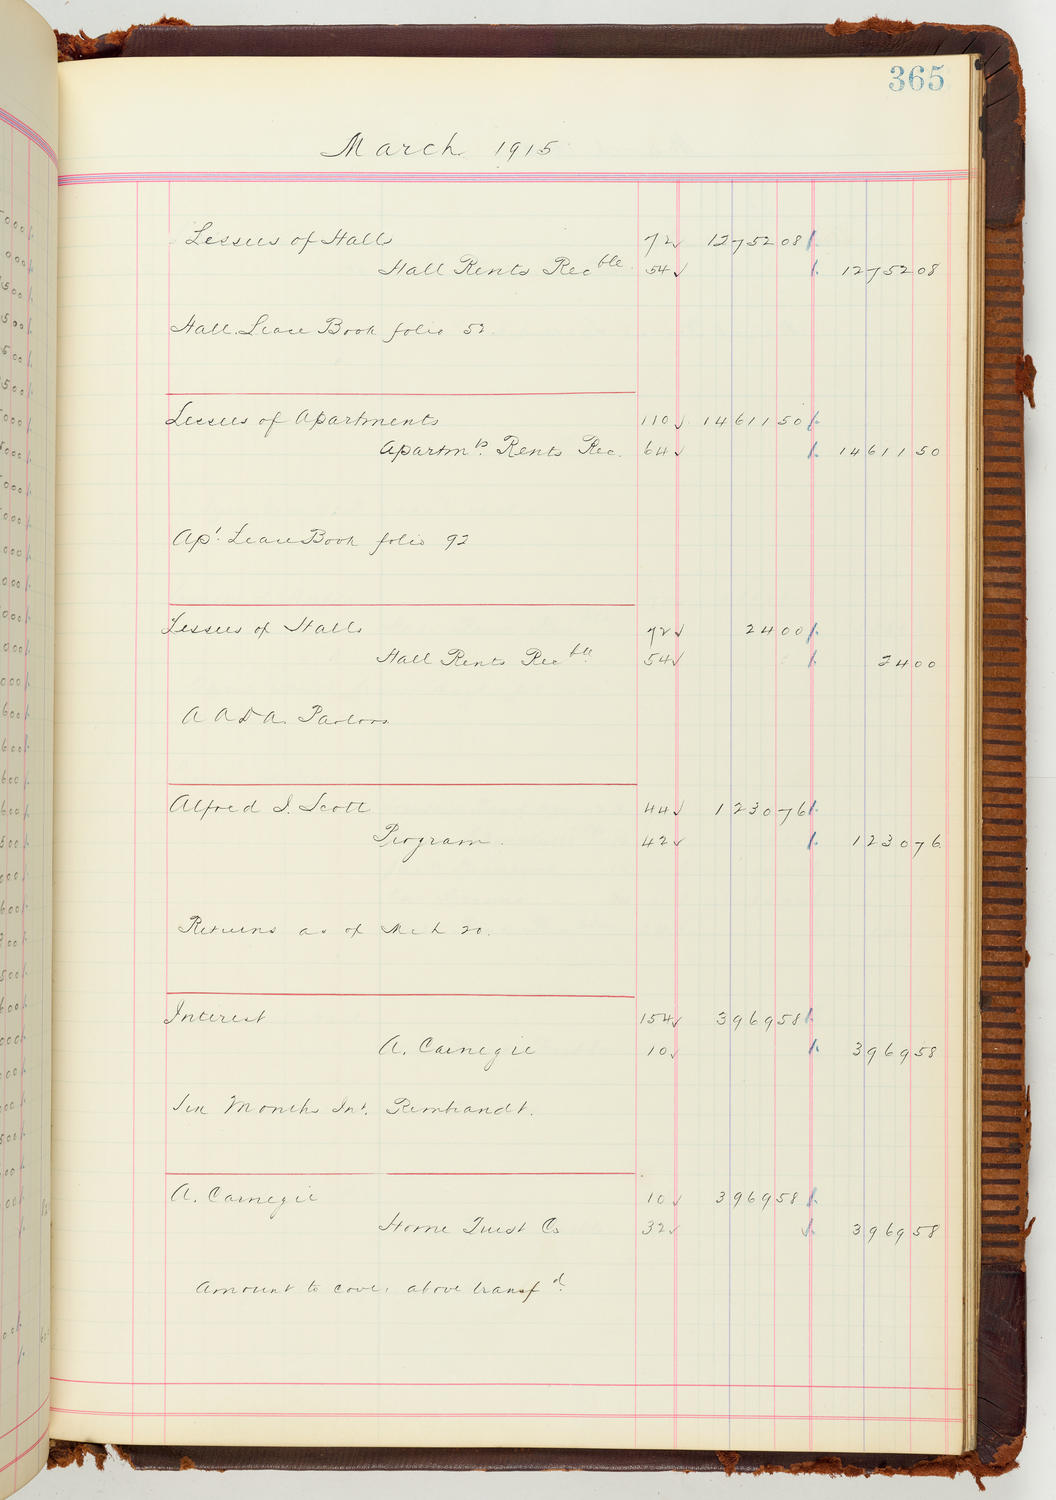 365
March 1915
Lessees of Halls 72 12752 08
Hall Rents Rec ble. 54 12752 08
Hall Lease Book folio 52.
Lessees of Apartments 110 14611 50
Apartm ts. Rents Rec. 64 14611 50
Ap t. Lease Book folio 92
Lessees of Halls 72 24 00
Hall Rents Rec ble. 54 24 00
A A D A. Parlors
Alfred I. Scott 44 1230 76
Program. 42 1230 76
Returns as of Mch 20.
Interest 154 3969 58
A. Carnegie 10 3969 58
Six Months Int. Rembrandt.
A. Carnegie 10 3969 58
Home Trust Co 32 3969 58
Amount to cover above transf d.